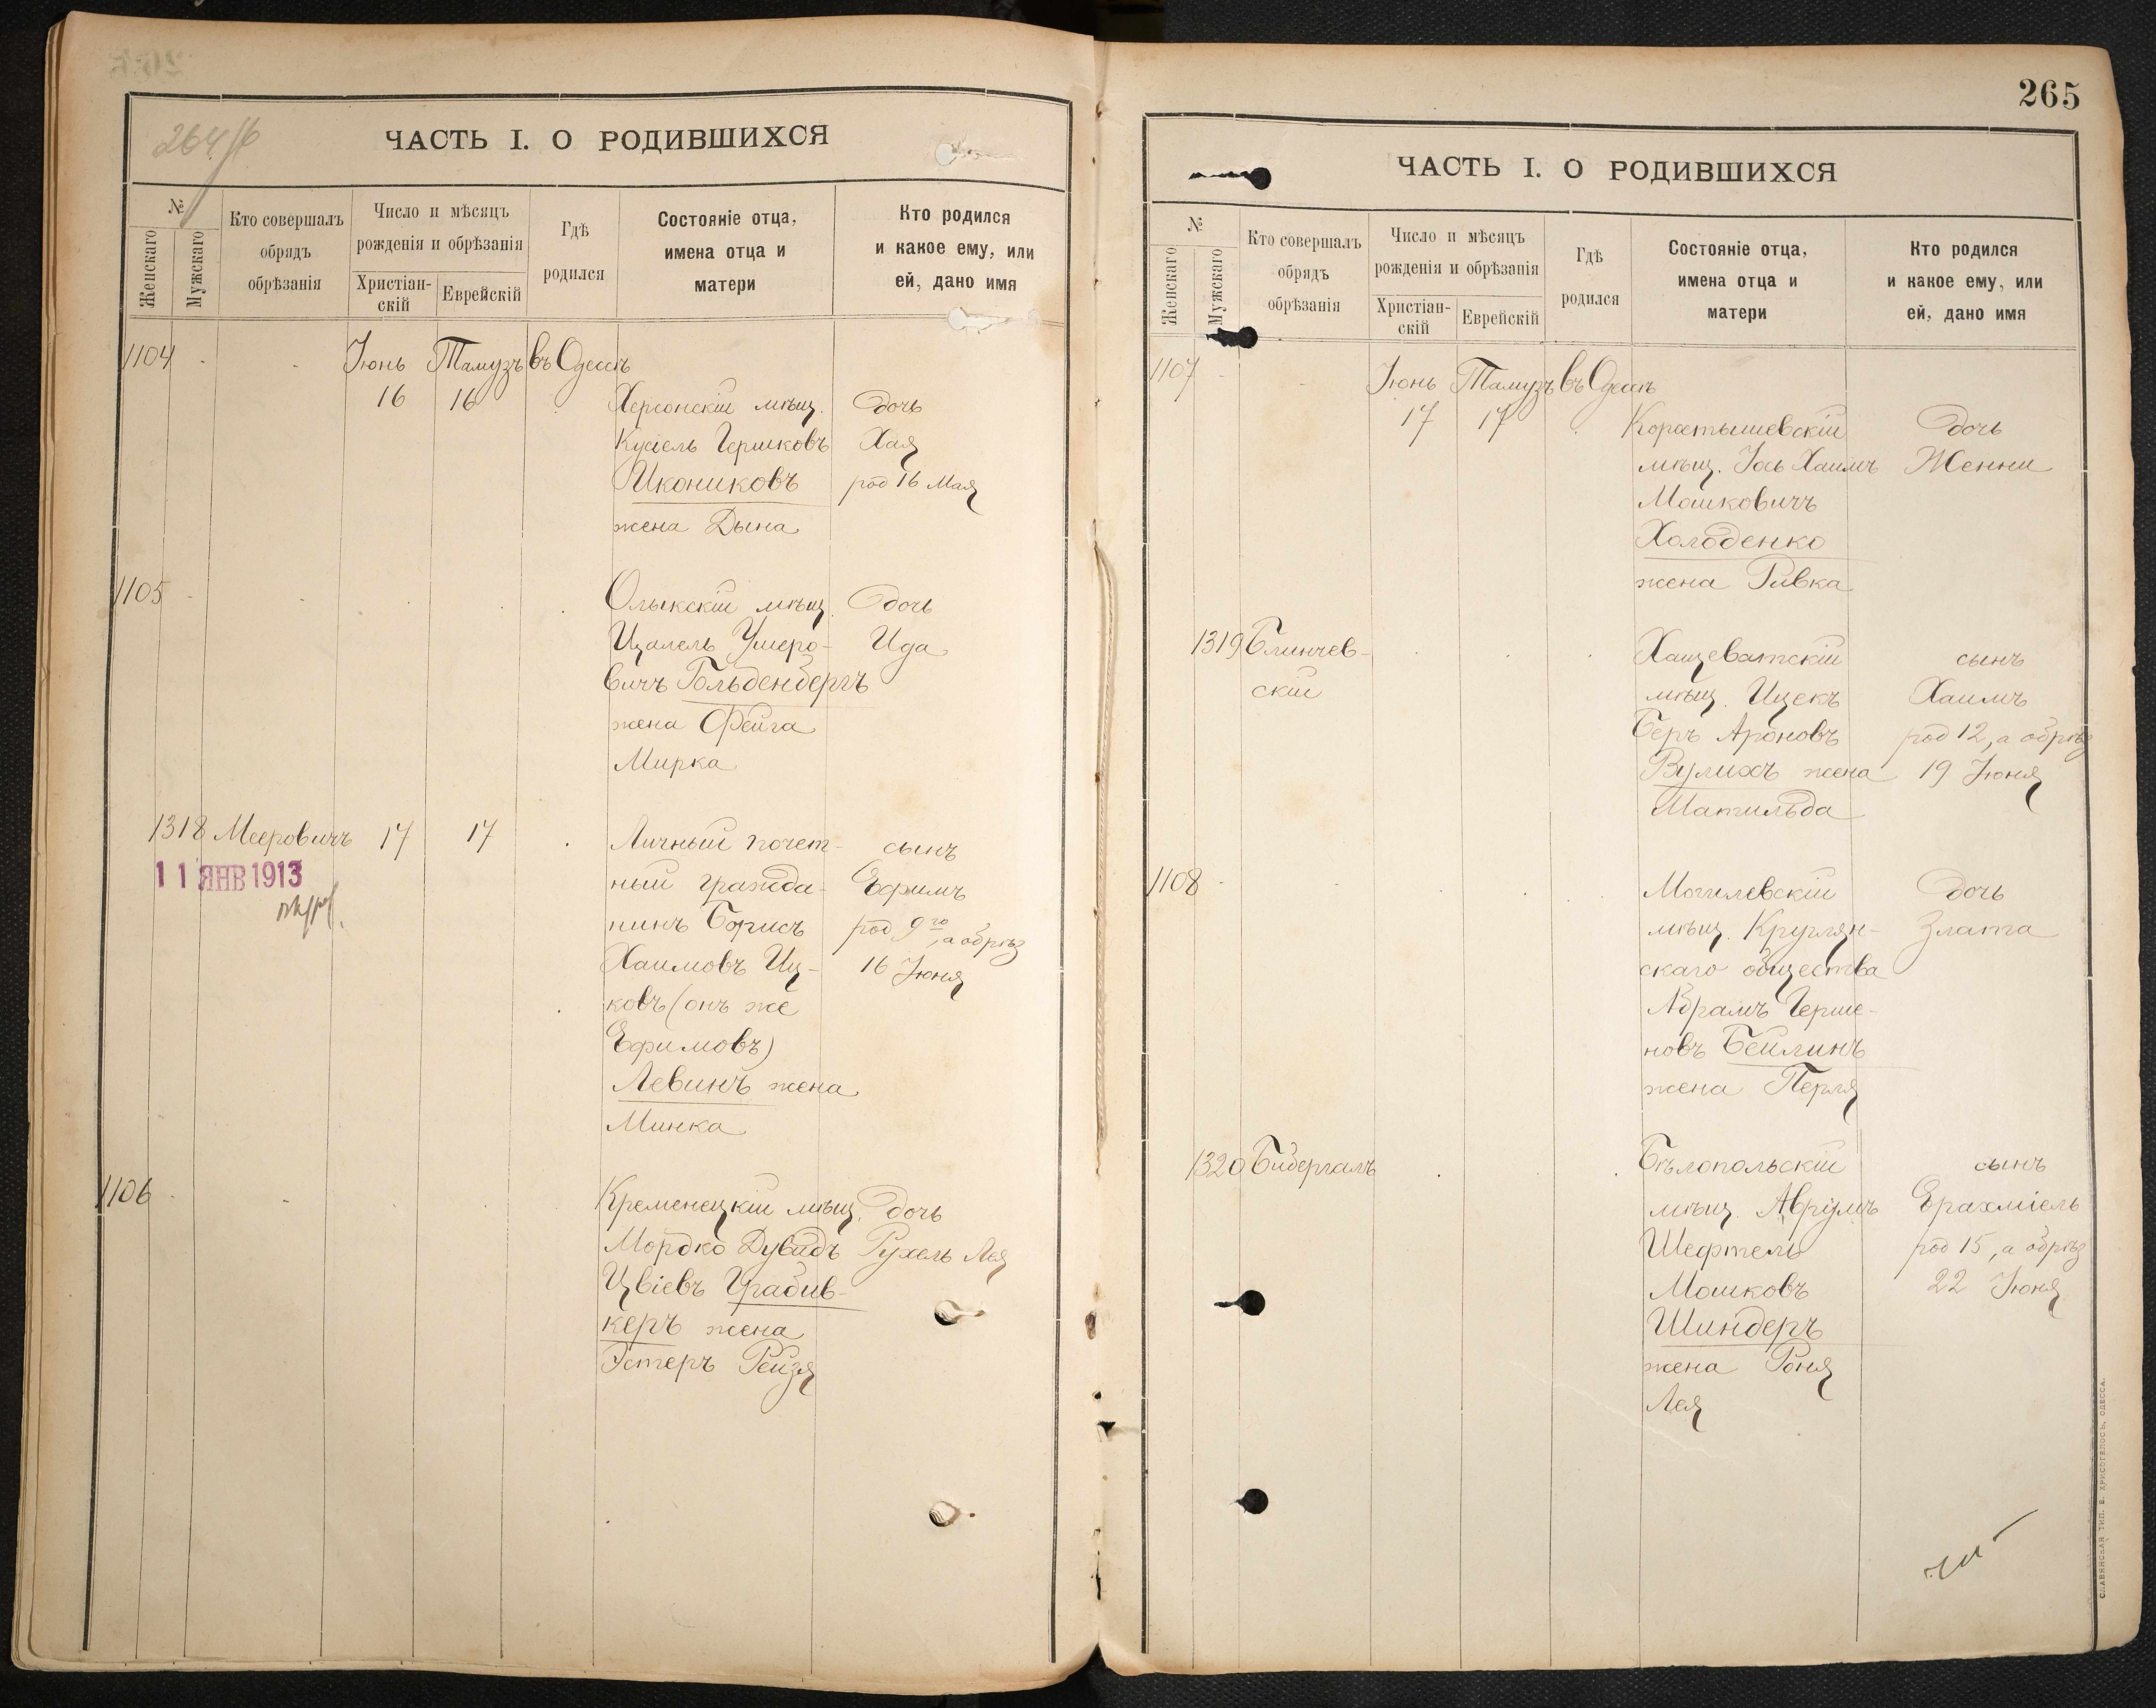 264
ЧАСТЬ I. О РОДИВШИХСЯ
№
Женскаго
Мужскаго
Кто совершалъ
обрядъ
обрѣзанія
Число и мѣсяцъ
рожденія и обрѣзанія
Христіан-
скій
Еврейскій
Гдѣ
родился
Состояніе отца,
имена отца и
матери
Кто родился
и какое ему, или
ей, дано имя
1104 Іюнь Тамузъ въ Одессѣ
16 16
Херсонскій мѣщ. дочь
Кусіель Гершковъ Хая
Икониковъ род 16 Мая
жена Дына
1105
Олыкскій мѣщ. дочь
Ицалель Умеро- Ида
вичъ Гольденбергъ
жена Фейга
Мирка
1318 Мееровичъ 17 17 Личный почет- сынъ
11 ЯНВ 1913
ный гражда- Ефимъ
нинъ Борисъ род 9го, а обрѣз
Хаимовъ Иц- 16 Іюня
ковъ (онъ же
Ефимовъ)
Левинъ жена
Минка
1106
Кременецкій мѣщ. дочь
Мордко Дувидъ Рухель Лея
Цвіевъ Грабив-
керъ жена
Эстеръ Рейзя
265
ЧАСТЬ I. О РОДИВШИХСЯ
№
Женскаго
Мужскаго
Кто совершалъ
обрядъ
обрѣзанія
Число и мѣсяцъ
рожденія и обрѣзанія
Христіан-
скій
Еврейскій
Гдѣ
родился
Состояніе отца,
имена отца и
матери
Кто родился
и какое ему, или
ей, дано имя
1107 Іюнь Тамузъ въ Одессѣ
17 17 Коростышевскій дочь
мѣщ. Іось Хаимъ Женни
Мошковичъ
Холоденко
жена Ривка
1319 Блинчев-
скій
Хащеватскій сынъ
мѣщ. Ицекъ Хаимъ
Беръ Ароновъ род 12, а обрѣз
Вулихъ жена 19 Іюня
Матильда
1108
Могилевскій дочь
мѣщ. Круглян- Злата
скаго общества
Абрамъ Герше-
новъ Бейлинъ
жена Перля
1320 Бибергалъ
Бѣлопольскій сынъ
мѣщ. Аврумъ Ерахміель
Шефтель род 15, а обрѣз
Мошковъ 22 Іюня
Шиндеръ
жена Роня
Лея
СЛАВЯНСКАЯ ТИП. Е. ХРИСОГЕЛОСЪ, ОДЕССА.